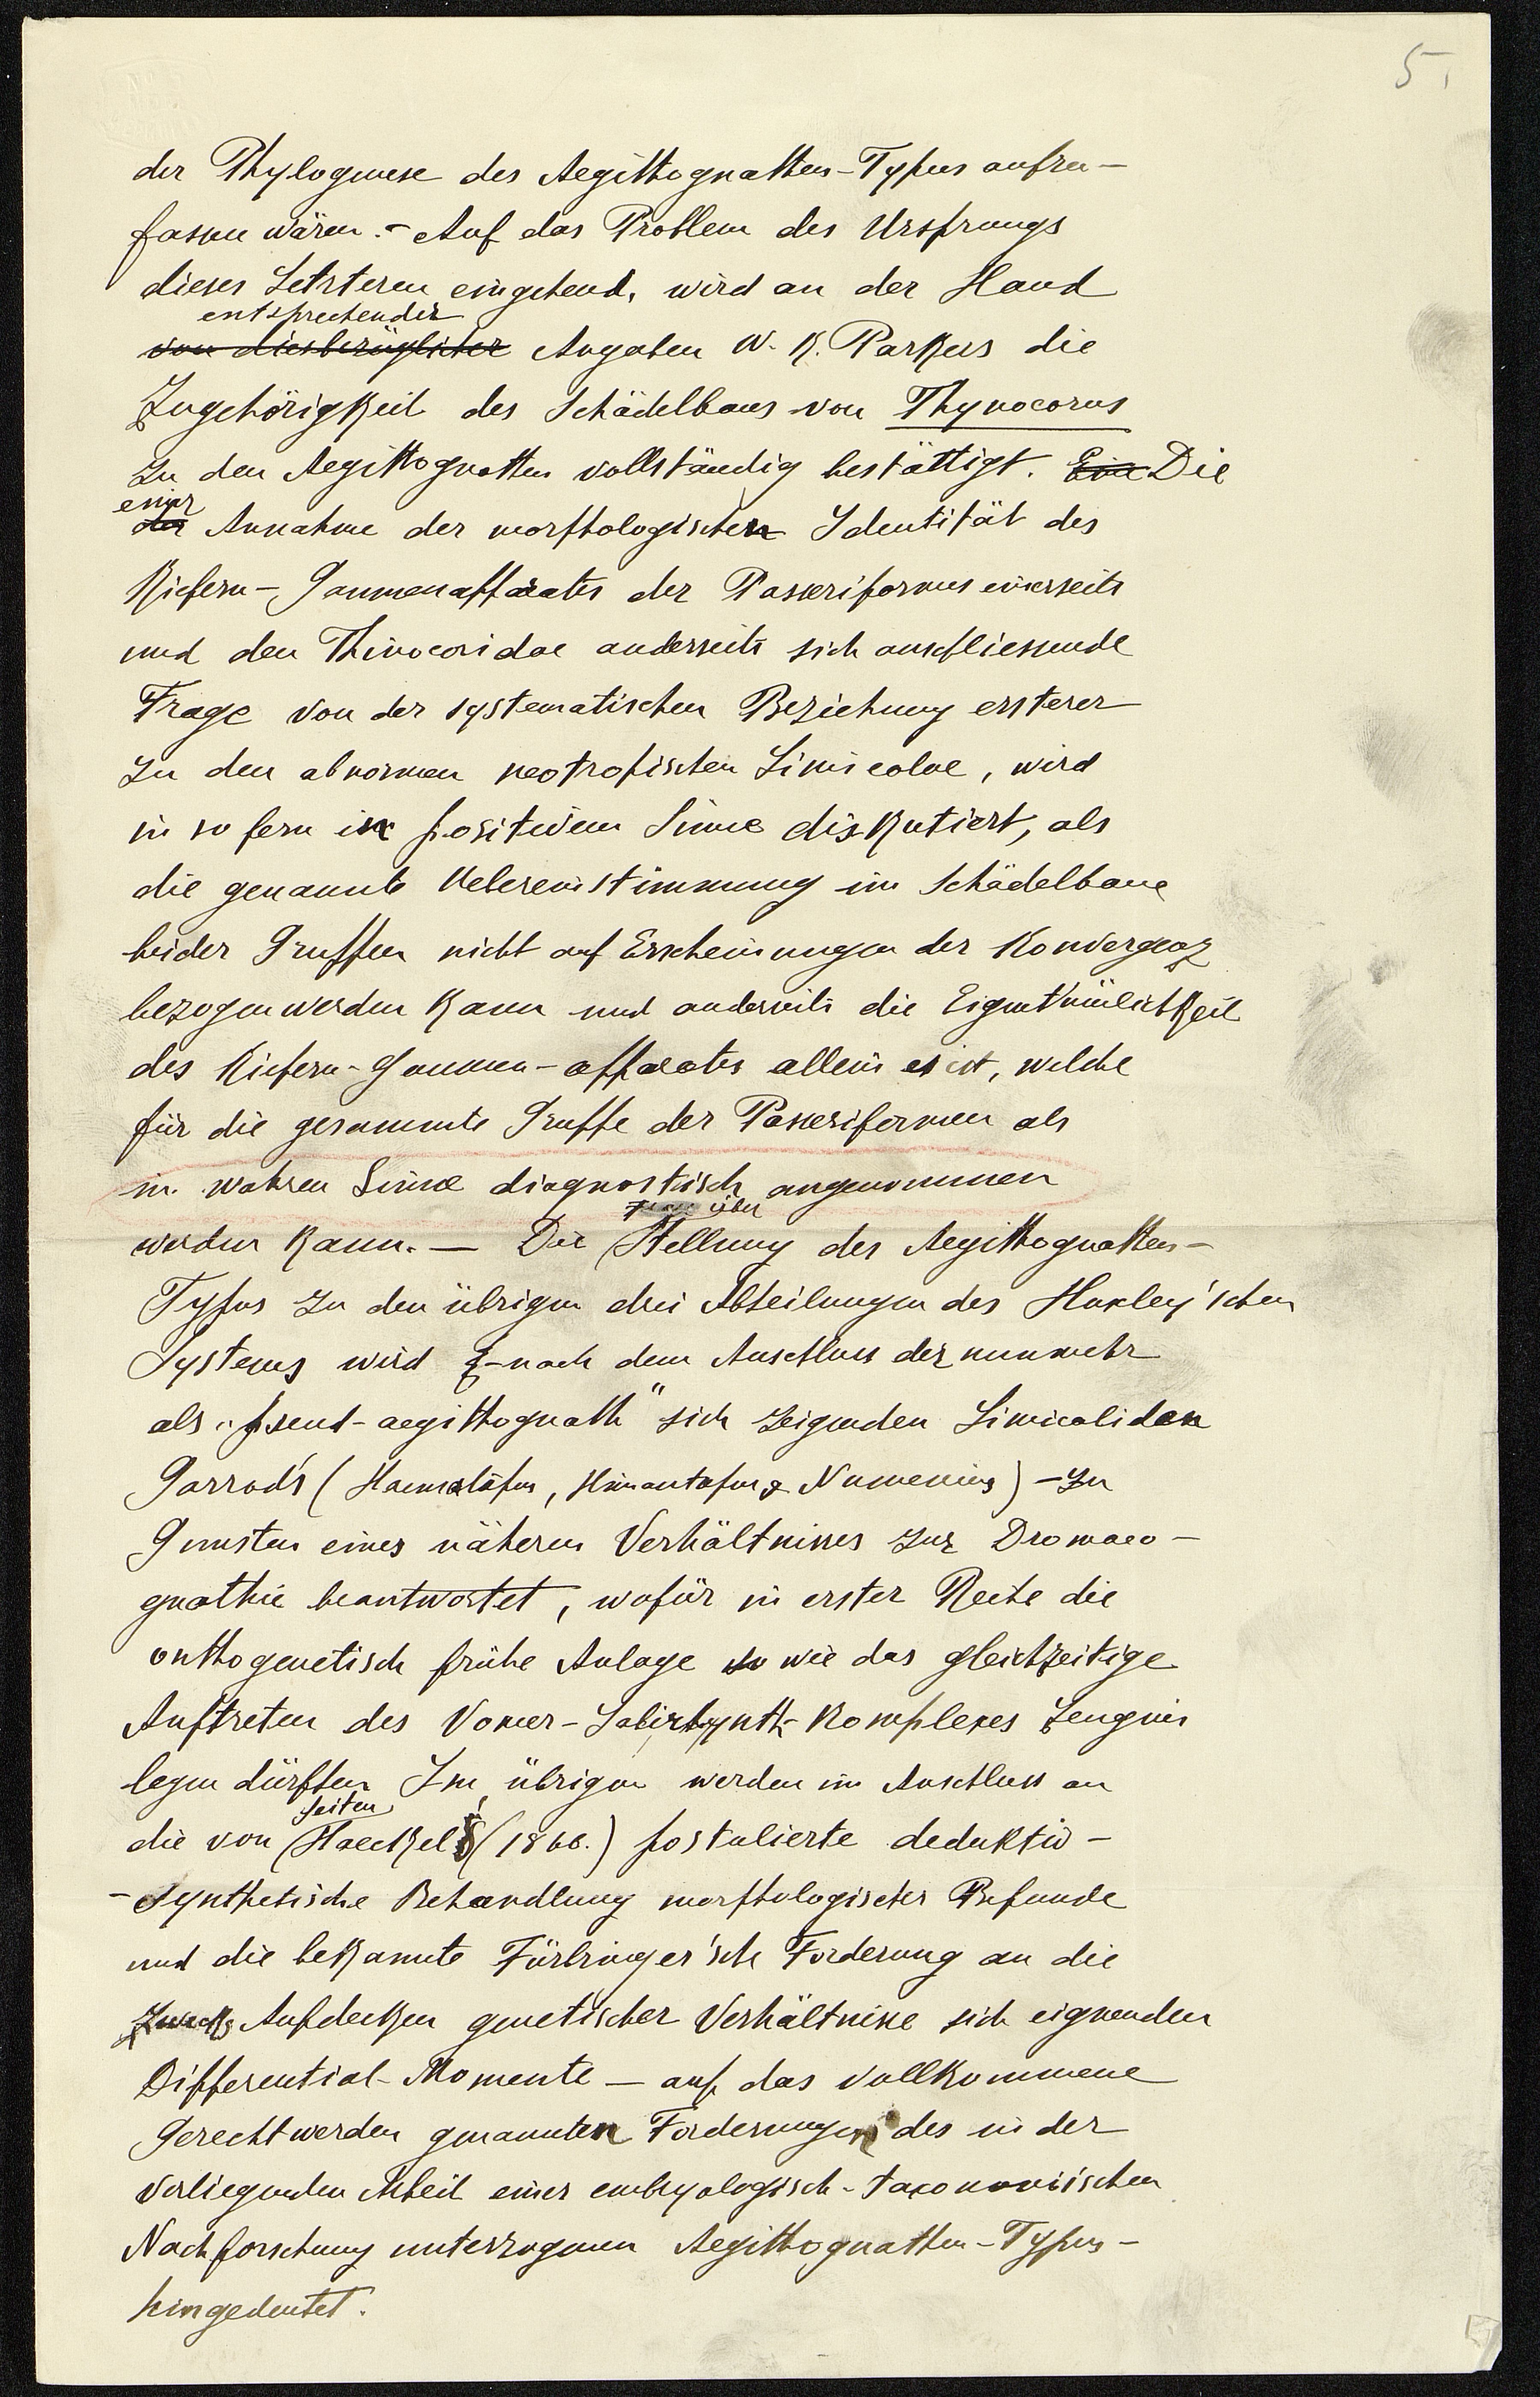 5,
der Phylogenese des Aegithognathen-Typus aufzu-
fassen wären. - Auf das Problem des Ursprungs
dieses Letzteren eingehend, wird an der Hand
entsprechender
von diesbezüglicher Angaben W. K. Parkers die
Zugehörigkeit des Schädelbaus von Thynocorus
zu den Aegithognathen vollständig bestättigt. Eine Die
einer
der Annahme der morphologischen Identität des
Kiefern-Gaumenapparates der Passeriformes einerseits
und den Thinocoridae anderseits sich anschliessende
Frage von der systematischen Beziehung ersterer
zu den abnormen neotropischen Limicolae, wird
in so fern in positivem Sinne diskutiert, als
die genannte Uebereinstimmung im Schädelbaue
beider Gruppen nicht auf Erscheinungen der Konvergenz
bezogen werden kann und anderseits die Eigentümlichkeit
des Kiefern-Gaumen-apparates allein es ist, welche
für die gesammte Gruppe der Passeriformen als
im wahren Sinne diagnostisch angenommen
über
werden kann. — Die Stellung des Aegithognathen-
Typus zu den übrigen drei Abteilungen des Huxley'schen
Systems wird - nach dem Anschluss der nunmehr
als „pseud-aegithognath" sich zeigenden Limicoliden
Garrod's (Haematopus, Himantopus & Numenius) - zu
Gunsten eines näheren Verhältnisses zur Dromaeo-
gnathie beantwortet, wofür in erster Reihe die
onthogenetisch frühe Anlage so wie das gleichzeitige
Auftreten des Vomer-Labirhynth-Komplexes Zeugnis
legen dürften. Im übrigen werden im Anschluss an
seiten
die von Haeckel's (1866.) postulierte deduktiv-
-synthetische Behandlung morphologischer Befunde
und die bekannte Fürbringer'sch Forderung an die
zwecks Aufdecken genetischer Verhältnisse sich eignenden
Differential-Momente — auf das vollkommene
Gerechtwerden genannten Forderungen des in der
vorliegenden Arbeit einer embryologisch-taxonomischen
Nachforschung unterzogenen Aegithognathen-Typus-
hingedeutet.